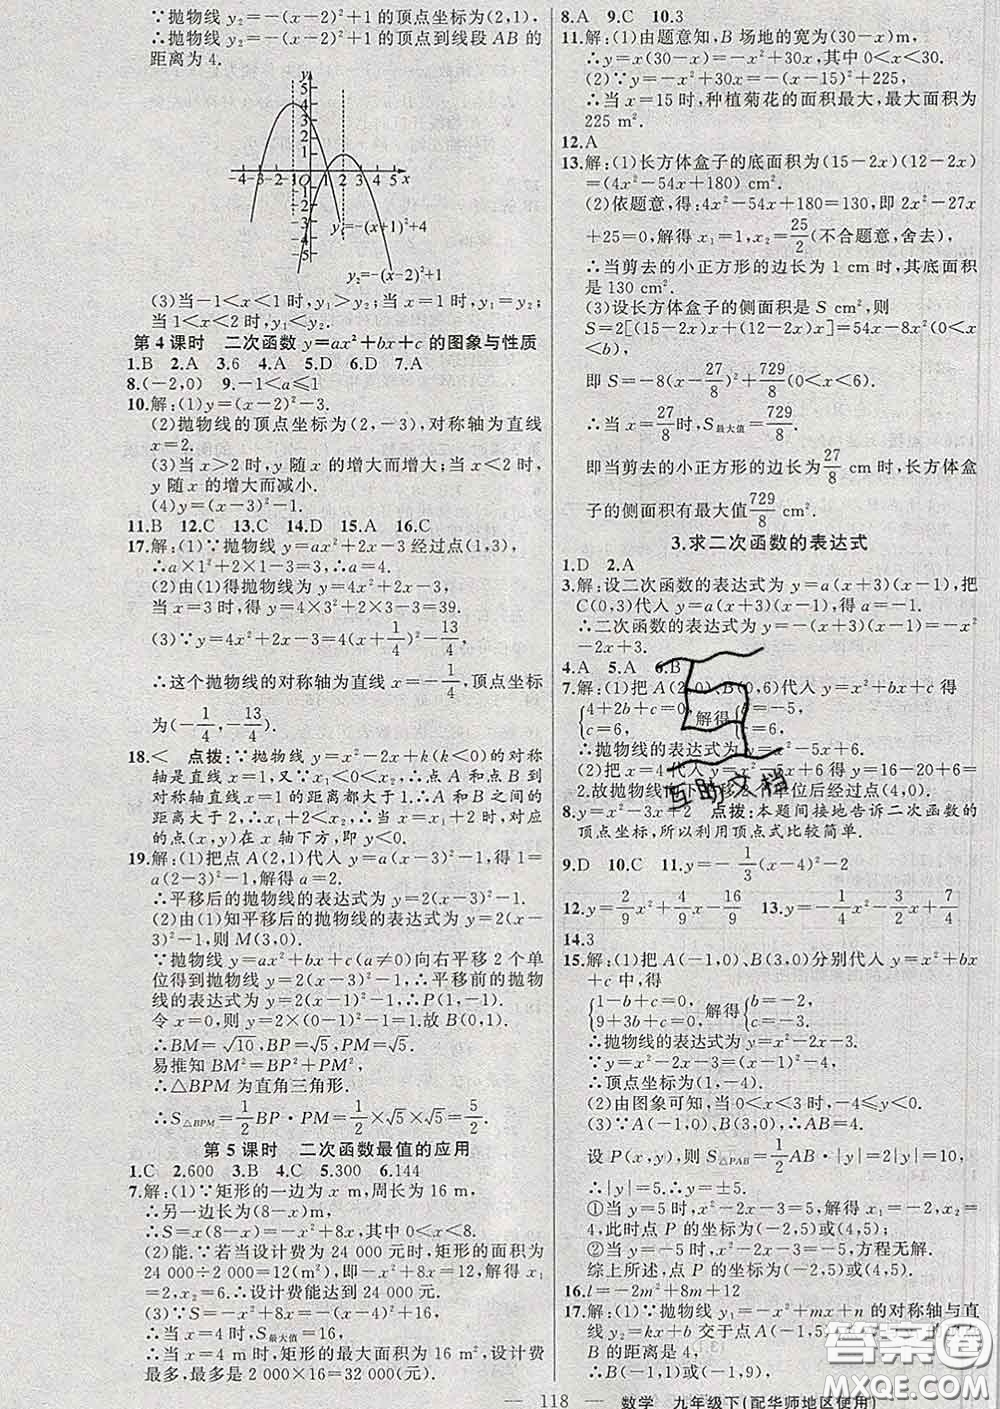 ∵抛物线 y₂=-(x-2)²+1 的顶点坐标为(2,1),
∴抛物线 y₂=-(x-2)²+1 的顶点到线段 AB 的
距离为 4.
y
5
4
3
2
1
-4 -3 -2 -1 O 1 2 3 4 5 x
-1
-2
-3
-4
-5
y₁=-(x+1)²+4
y₂=-(x-2)²+1
(3)当-1<x<1 时, y₁>y₂;当 x=1 时, y₁=y₂;
当 1<x<2 时, y₁<y₂.
第 4 课时 二次函数 y=ax²+bx+c 的图象与性质
1.B 2.A 3.6 4.A 5.D 6.D 7.A
8.(-2,0) 9.-1<a≤1
10.解:(1)y=(x-2)²-3.
(2)抛物线的顶点坐标为(2,-3),对称轴为直线
x=2.
(3)当 x>2 时, y 随 x 的增大而增大;当 x<2 时,
y 随 x 的增大而减小.
(4)y=(x-3)²-1.
11.B 12.C 13.C 14.D 15.A 16.C
17.解:(1)∵抛物线 y=ax²+2x-3 经过点(1,3),
∴a×1²+2×1-3=3.∴a=4.
(2)由(1)得抛物线为 y=4x²+2x-3,
当 x=3 时,得 y=4×3²+2×3-3=39.
(3)∵y=4x²+2x-3=4(x+1/4)²-13/4,
∴这个抛物线的对称轴为直线 x=-1/4,顶点坐标
为(-1/4,-13/4).
18.< 点拨:∵抛物线 y=x²-2x+k(k<0)的对称
轴是直线 x=1,又∵x₁<0<x₂,∴点 A 和点 B 到
对称轴直线 x=1 的距离都大于 1,∴A 和 B 之间的
距离大于 2,∴x₁+2<x₂.∴当 x=x₁+2 时,对应
的点(x,y)在 x 轴下方,即 y<0.
19.解:(1)把点 A(2,1)代入 y=a(x-3)²-1,得 1=
a(2-3)²-1.解得 a=2.
∴平移后的抛物线的表达式为 y=2(x-3)²-1.
(2)由(1)知平移后的抛物线的表达式为 y=2(x-
3)²-1,则 M(3,0).
∵抛物线 y=ax²+bx+c(a≠0)向右平移 2 个单
位得到抛物线 y=2(x-3)²-1,∴平移前的抛物
线的表达式为 y=2(x-1)²-1,∴P(1,-1).
令 x=0,则 y=2×(0-1)²-1=1.故 B(0,1).
∴BM=√10,BP=√5,PM=√5.
易推知 BM²=BP²+PM²,
∴△BPM 为直角三角形.
∴S△BPM=1/2 BP·PM=1/2×√5×√5=5/2.
第 5 课时 二次函数最值的应用
1.C 2.600 3.B 4.C 5.300 6.144
7.解:(1)∵矩形的一边为 x m,周长为 16 m,
∴另一边长为(8-x)m,
∴S=x(8-x)=-x²+8x,其中 0<x<8.
(2)能.∵若当设计费为 24 000 元时,矩形的面积为
24 000÷2 000=12(m²),即-x²+8x=12,解得 x₁
=2,x₂=6,∴设计费能达到 24 000 元.
(3)∵S=-x²+8x=-(x-4)²+16,
∴当 x=4 时,S最大值=16,
∴当 x=4 m 时,矩形的最大面积为 16 m²,设计费
最多,最多是 2 000×16=32 000(元).
8.A 9.C 10.3
11.解:(1)由题意知, B 场地的宽为(30-x)m,
∴y=x(30-x)=-x²+30x,其中 0<x<30.
(2)∵y=-x²+30x=-(x-15)²+225,
∴当 x=15 时,种植菊花的面积最大,最大面积为
225 m².
12.A
13.解:(1)长方体盒子的底面积为(15-2x)(12-2x)
=(4x²-54x+180) cm².
(2)依题意,得:4x²-54x+180=130,即 2x²-27x
+25=0,解得 x₁=1,x₂=25/2(不合题意,舍去),
∴当剪去的小正方形的边长为 1 cm 时,其底面积
是 130 cm².
(3)设长方体盒子的侧面积是 S cm²,则
S=2[(15-2x)x+(12-2x)x]=54x-8x²(0<x
<6).
即 S=-8(x-27/8)²+729/8(0<x<6).
∴当 x=27/8时,S最大值=729/8.
即当剪去的小正方形的边长为27/8 cm 时,长方体盒
子的侧面积有最大值729/8 cm².
3.求二次函数的表达式
1.D 2.A
3.解:设二次函数的表达式为 y=a(x+3)(x-1),把
C(0,3)代入 y=a(x+3)(x-1),得 a=-1.
∴二次函数的表达式为 y=-(x+3)(x-1)=-x²
-2x+3.
4.A 5.A 6.B
7.解:(1)把 A(2,0)、B(0,6)代入 y=x²+bx+c 得
{4+2b+c=0, c=6, 解得{b=-5, c=6,
∴抛物线的表达式为 y=x²-5x+6.
(2)把 x=4 代入 y=x²-5x+6 得 y=16-20+6=
2.故抛物线向下平移 2 个单位后经过点(4,0).
8.y=x²-3x+2 点拨:本题间接地告诉二次函数的
顶点坐标,所以利用顶点式比较简单.
9.D 10.C 11.y=-1/3(x-4)²-2
12.y=2/9x²+4/9x-16/9 13.y=-1/4x²-3/2x+7/4
14.3
15.解:(1)把 A(-1,0)、B(3,0)分别代入 y=x²+bx
+c 中,得
{1-b+c=0, 9+3b+c=0, 解得{b=-2, c=-3,
∴抛物线的表达式为 y=x²-2x-3.
∵y=x²-2x-3=(x-1)²-4,
∴顶点坐标为(1,-4).
(2)由图象可知,当 0<x<3 时,-4≤y<0.
(3)∵A(-1,0)、B(3,0),∴AB=4.
设 P(x,y),则 S△PAB=1/2 AB·|y|=2|y|=10,
∴|y|=5.∴y=±5.
①当 y=5 时, x²-2x-3=5,解得 x₁=-2,x₂=
4,此时点 P 的坐标为(-2,5)或(4,5);
②当 y=-5 时, x²-2x-3=-5,方程无解.
综上所述,点 P 的坐标为(-2,5)或(4,5).
16.l=-2m²+8m+12
17.解:(1)∵抛物线 y₁=-x²+mx+n 的对称轴与直
线 y₂=kx+b 交于点 A(-1,5),
B 的距离是 4,
∴B(-1,1)或(-1,9).
互助文档
答案圈
MXQE.COM
118 数学 九年级下(配华师地区使用)